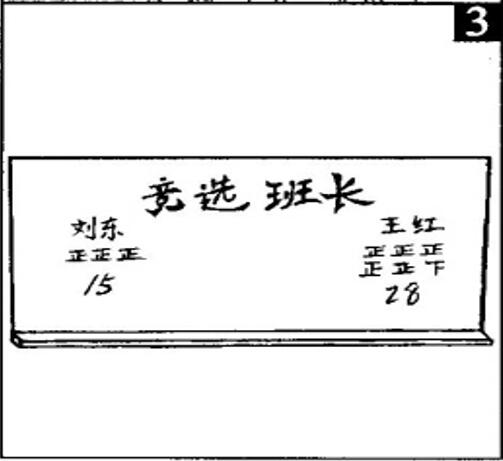 3
竞选班长
刘东
正正正
15
王红
正正正
正正下
28